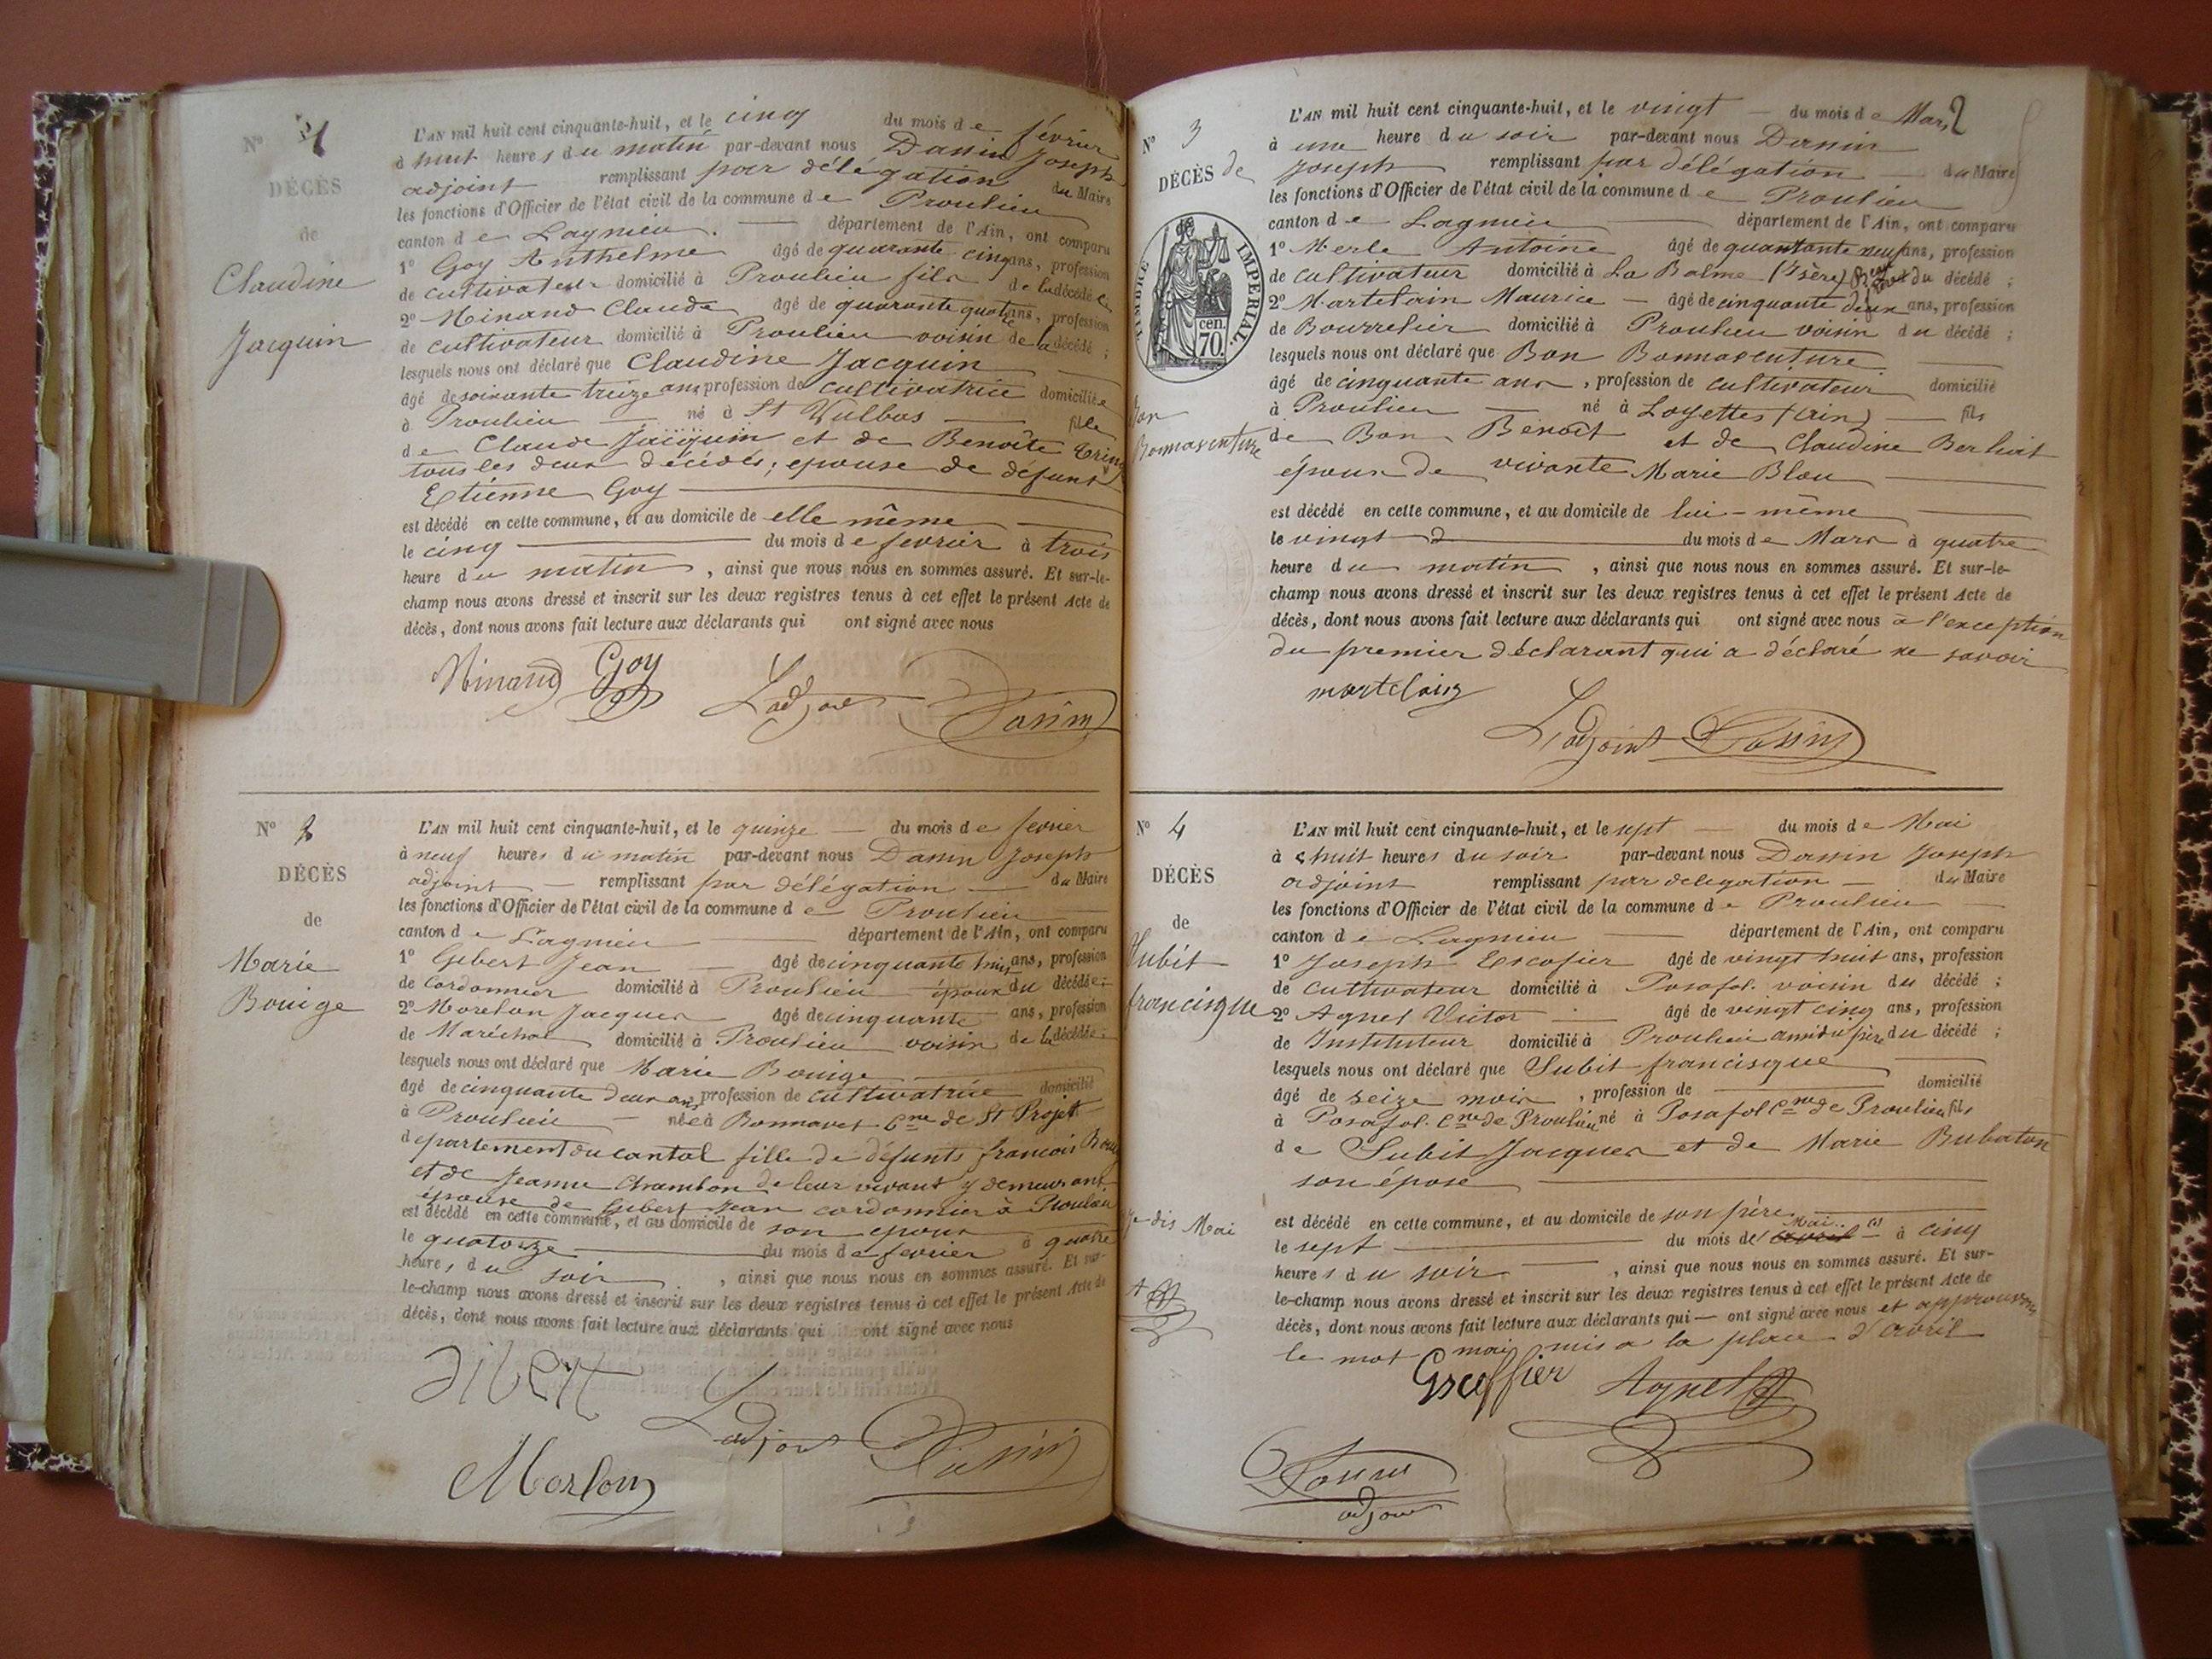 N° 1
DÉCÈS
de
Claudine
Jacquin
L'AN mil huit cent cinquante-huit, et le cinq du mois de février
à huit heures du matin par-devant nous Dassin Joseph
adjoint remplissant par délégation du Maire
les fonctions d'Officier de l'état civil de la commune de Proulieu
canton de Lagnieu. département de l'Ain, ont comparu
1° Goy Anthelme âgé de quarante cinq ans, profession
de cultivateur domicilié à Proulieu fils de la décédée
2° Ninand Claude âgé de quarante quatre ans, profession
de cultivateur domicilié à Proulieu voisin de la décédé ;
lesquels nous ont déclaré que Claudine Jacquin
âgé de soixante treize ans, profession de cultivatrice domiciliée
à Proulieu né à St Vulbas fille
de Claude Jacquin et de Benoîte
tous les deux décédés ; epouse de défunt
Etienne Goy
est décédé en cette commune, et au domicile de elle même
le cinq du mois de fevrier à trois
heure du matin, ainsi que nous nous en sommes assuré. Et sur-le-
champ nous avons dressé et inscrit sur les deux registres tenus à cet effet le présent Acte de
décès, dont nous avons fait lecture aux déclarants qui ont signé avec nous
Ninand Goy Ladjoint Dassin
N° 2
DÉCÈS
de
Marie
Bouige
L'AN mil huit cent cinquante-huit, et le quinze du mois de fevrier
à neuf heures du matin par-devant nous Dassin Joseph
adjoint remplissant par délégation du Maire
les fonctions d'Officier de l'état civil de la commune de Proulieu
canton de Lagnieu département de l'Ain, ont comparu
1° Gibert Jean âgé de cinquante huit ans, profession
de Cordonnier domicilié à Proulieu époux du décédée ;
2° Morelon Jacques âgé de cinquante ans, profession
de Maréchal domicilié à Proulieu voisin de la décédée ;
lesquels nous ont déclaré que Marie Bouige
âgé de cinquante deux ans, profession de cultivatrice domicilié
à Proulieu née à Bonnavet Cne de St Projet
departement du cantal fille de défunts francois Bouig
et de Jeanne Chambon de leur vivant y demeurant
épouse de Gibert Jean cordonnier à Proulieu
est décédé en cette commune, et au domicile de son epoux
le quatorze du mois de fevrier à quatre
heures du soir, ainsi que nous nous en sommes assuré. Et sur-
le-champ nous avons dressé et inscrit sur les deux registres tenus à cet effet le présent Acte de
décès, dont nous avons fait lecture aux déclarants qui ont signé avec nous
Gibert Ladjoint Dassin
Morlon
2
N° 3
DÉCÈS de
TIMBRE IMPÉRIAL.
70 cen.
Bon
Bonnaventure
L'AN mil huit cent cinquante-huit, et le vingt du mois de Mars
à une heure du soir par-devant nous Dassin
Joseph remplissant par délégation du Maire
les fonctions d'Officier de l'état civil de la commune de Proulieu
canton de Lagnieu département de l'Ain, ont comparu
1° Merle Antoine âgé de quarantante neuf ans, profession
de cultivateur domicilié à La Balme (Isère) du décédé ;
2° Martelain Maurice âgé de cinquante deux ans, profession
de Bourrelier domicilié à Proulieu voisin du décédé ;
lesquels nous ont déclaré que Bon Bonnaventure
âgé de cinquante ans, profession de cultivateur domicilié
à Proulieu né à Loyettes (Ain) fils
de Bon Benoît et de Claudine Berliat
époux de vivante Marie Blau
est décédé en cette commune, et au domicile de lui-même
le vingt du mois de Mars à quatre
heure du matin, ainsi que nous nous en sommes assuré. Et sur-le-
champ nous avons dressé et inscrit sur les deux registres tenus à cet effet le présent Acte de
décès, dont nous avons fait lecture aux déclarants qui ont signé avec nous à l'exception
du premier déclarant qui a déclaré ne savoir
martelain
Ladjoint Dassin
N° 4
DÉCÈS
de
Subit
francisque
L'AN mil huit cent cinquante-huit, et le sept du mois de Mai
à huit heures du soir par-devant nous Dassin Joseph
adjoint remplissant par delegation du Maire
les fonctions d'Officier de l'état civil de la commune de Proulieu
canton de Lagnieu département de l'Ain, ont comparu
1° Joseph Escofier âgé de vingt huit ans, profession
de cultivateur domicilié à Posafol. voisin du décédé ;
2° Agnel Victor âgé de vingt cinq ans, profession
de Instituteur domicilié à Proulieu ami du père du décédé ;
lesquels nous ont déclaré que Subit francisque
âgé de seize mois, profession de domicilié
à Posafol. Cne de Proulieu né à Posafol Cne de Proulieu fils
de Subit Jacques et de Marie Bubaton
son épose
est décédé en cette commune, et au domicile de son père
le sept du mois de avril Mai à cinq
heures du soir, ainsi que nous nous en sommes assuré. Et sur-
le-champ nous avons dressé et inscrit sur les deux registres tenus à cet effet le présent Acte de
décès, dont nous avons fait lecture aux déclarants qui ont signé avec nous et approuvons
le mot mai mis a la place d'avril
je dis Mai
Escoffier Agnel
Dassin
adjoint